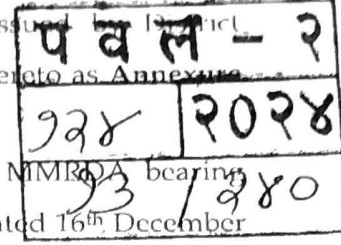 issued by District
प व ल - २
ereto as Annexure
१२४ २०२४
MMRDA bearing
१३ / २४०
ated 16th December